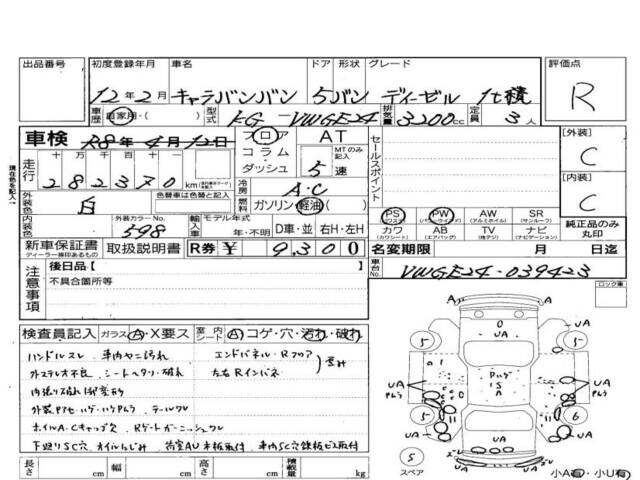 出品番号 初度登録年月 車名 ドア 形状 グレード 評価点
12年2月 キャラバンバン 5バン ディーゼル 1t積 R
車歴 自家用・( ) 型式 KG-VWGE24 排気量 3200cc 定員 3人
車検 R8年4月12日 フロア AT
コラム MTのみ記入
ダッシュ 5速
セールスポイント
[外装] C
[内装] C
現在色を記入
走行 十 万 千 百 十
282370 km
冷房 A・C
外装色 白 色替車は色替と記入
燃料 ガソリン・軽油・( )
内装色 外装カラーNo. 598 輸入車 モデル年式 年・不明 D車・並 右H・左H
PS (パワステ) PW (パワーウィンド) AW (アルミホイル) SR (サンルーフ)
カワ (カワシート) AB (エアバッグ) TV (テレビ) ナビ (ナビゲーション)
純正品のみ丸印
新車保証書 ディーラー捺印あるもの 取扱説明書 R券 ¥ 9,300
名変期限 月 日迄
注意事項 後日品【 】
不具合箇所等
車台No. VWGE24-039423
ロック車
検査員記入 ガラス A・X要ス 室内 シート A コゲ・穴・汚れ・破れ
ハンドルスレ 車内ヤニ汚れ エンドパネル・Rフロア
外ステレオ不良 シートヘタリ・破れ 左右Rインパネ 歪み
内張り破れ
ホイルA・Cキャップ欠 Rゲートガーニッシュワレ
下廻りSC穴 オイルにじみ 荷室AU木板取付
長さ cm 幅 cm 高さ cm 積載量 kg
UA
A A
5 UA 5
UA
UA UA
5 6
UA
5
スペア
小A有 小U有